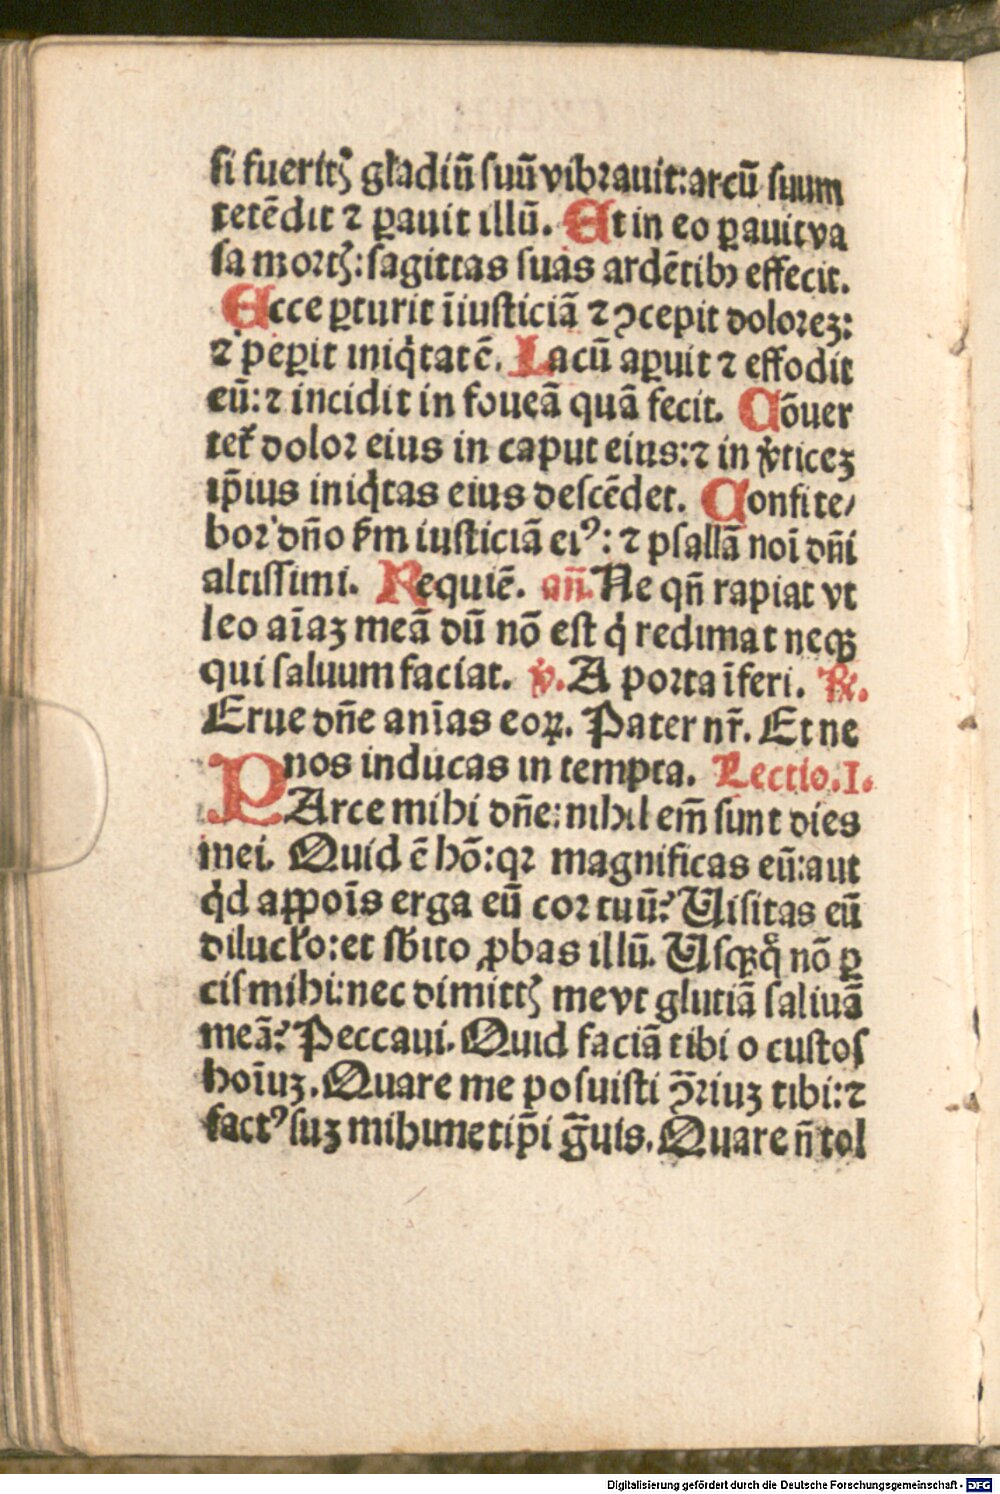 si fueritꝭ gładiū suū vibꝛauit: arcū suum
tetēdit ⁊ ꝑauit illū. Et in eo ꝑauit va
sa moꝛtꝭ: sagittas suas ardētibꝫ effecit.
Ecce ꝑturit īiusticiā ⁊ ꝯcepit doloꝛeꝫ:
⁊ peꝑit iniq̇tatē. Lacū aꝑuit ⁊ effodit
eū: ⁊ incidit in foueā quā fecit. Cōuer
tet̉ doloꝛ eius in caput eius: ⁊ in v̉ticeꝫ
ip̄ius iniq̇tas eius descēdet. Confite/
boꝛ dn̄o ẜm iusticiā eiꝰ: ⁊ psallā noī dn̄i
altissimi. Requiē. an̄. Ne qn̄ rapiat vt
leo aīaꝫ meā dū nō est q̇ redimat neqꝫ
qui saluum faciat. ℣. A poꝛta īferi. ℟.
Erue dn̄e anīas eoꝝ. Pater nr̄. Et ne
nos inducas in tempta. Lectio. I.
PArce mihi dn̄e: nihil em̄ sunt dies
mei. Quid ē hō: qꝛ magnificas eū: aut
q̇d aꝑpoīs erga eū coꝛ tuū? Uisitas eū
diluc̉o: et sb̄ito ꝓbas illū. Usqꝫq̊ nō ꝑ
cis mihi: nec dimittꝭ me vt glutiā saliuā
meā? Peccaui. Quid faciā tibi o custos
hoīuꝫ. Quare me posuisti ꝯ̄riuꝫ tibi: ⁊
factꝰ suꝫ mihimetip̄i g̅uis. Quare n̄ tol
Digitalisierung gefördert durch die Deutsche Forschungsgemeinschaft - DFG